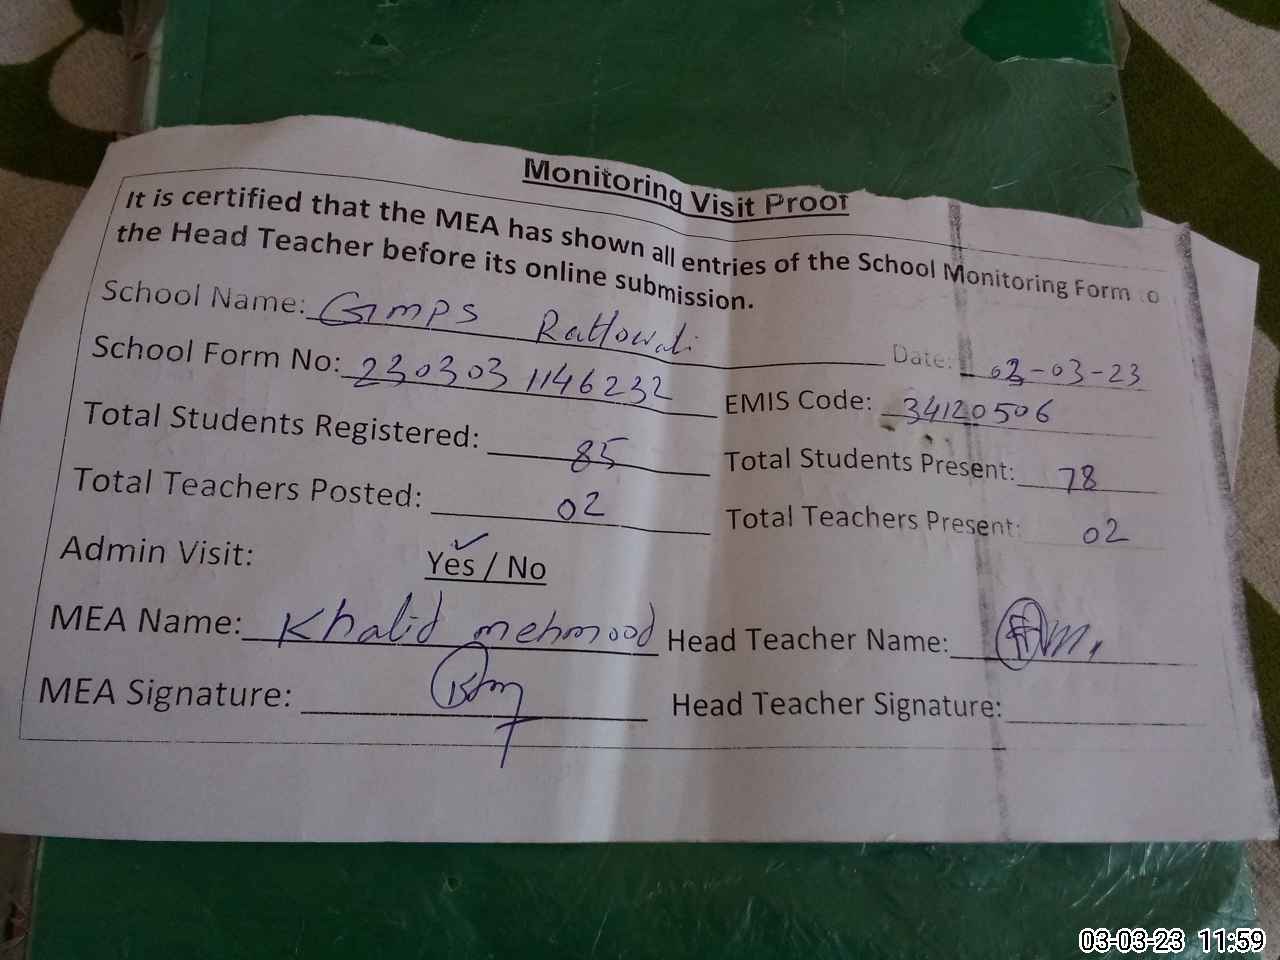 Monitoring Visit Proof
It is certified that the MEA has shown all entries of the School Monitoring Form to
the Head Teacher before its online submission.
School Name: GMPS Rattowali Date: 03-03-23
School Form No: 230303 1146232 EMIS Code: 34120506
Total Students Registered: 85 Total Students Present: 78
Total Teachers Posted: 02 Total Teachers Present: 02
Admin Visit: Yes / No
MEA Name: Khalid mehmood Head Teacher Name:
MEA Signature: Head Teacher Signature:
03-03-23 11:59